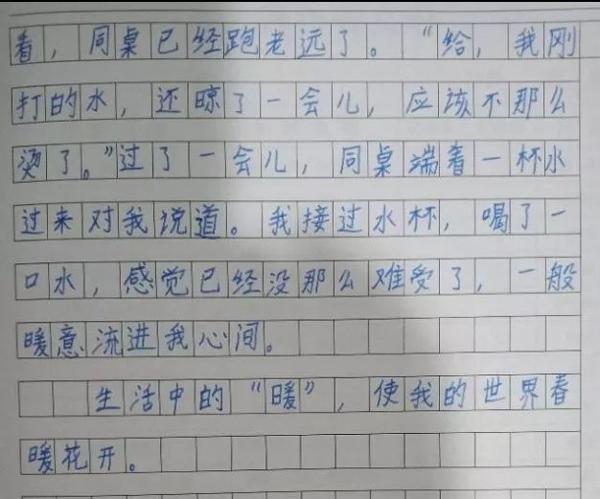 看，同桌已经跑老远了。“给，我刚
打的水，还晾了一会儿，应该不那么
烫了。”过了一会儿，同桌端着一杯水
过来对我说道。我接过水杯，喝了一
口水，感觉已经没那么难受了，一般
暖意流进我心间。
生活中的“暖”，使我的世界春
暖花开。